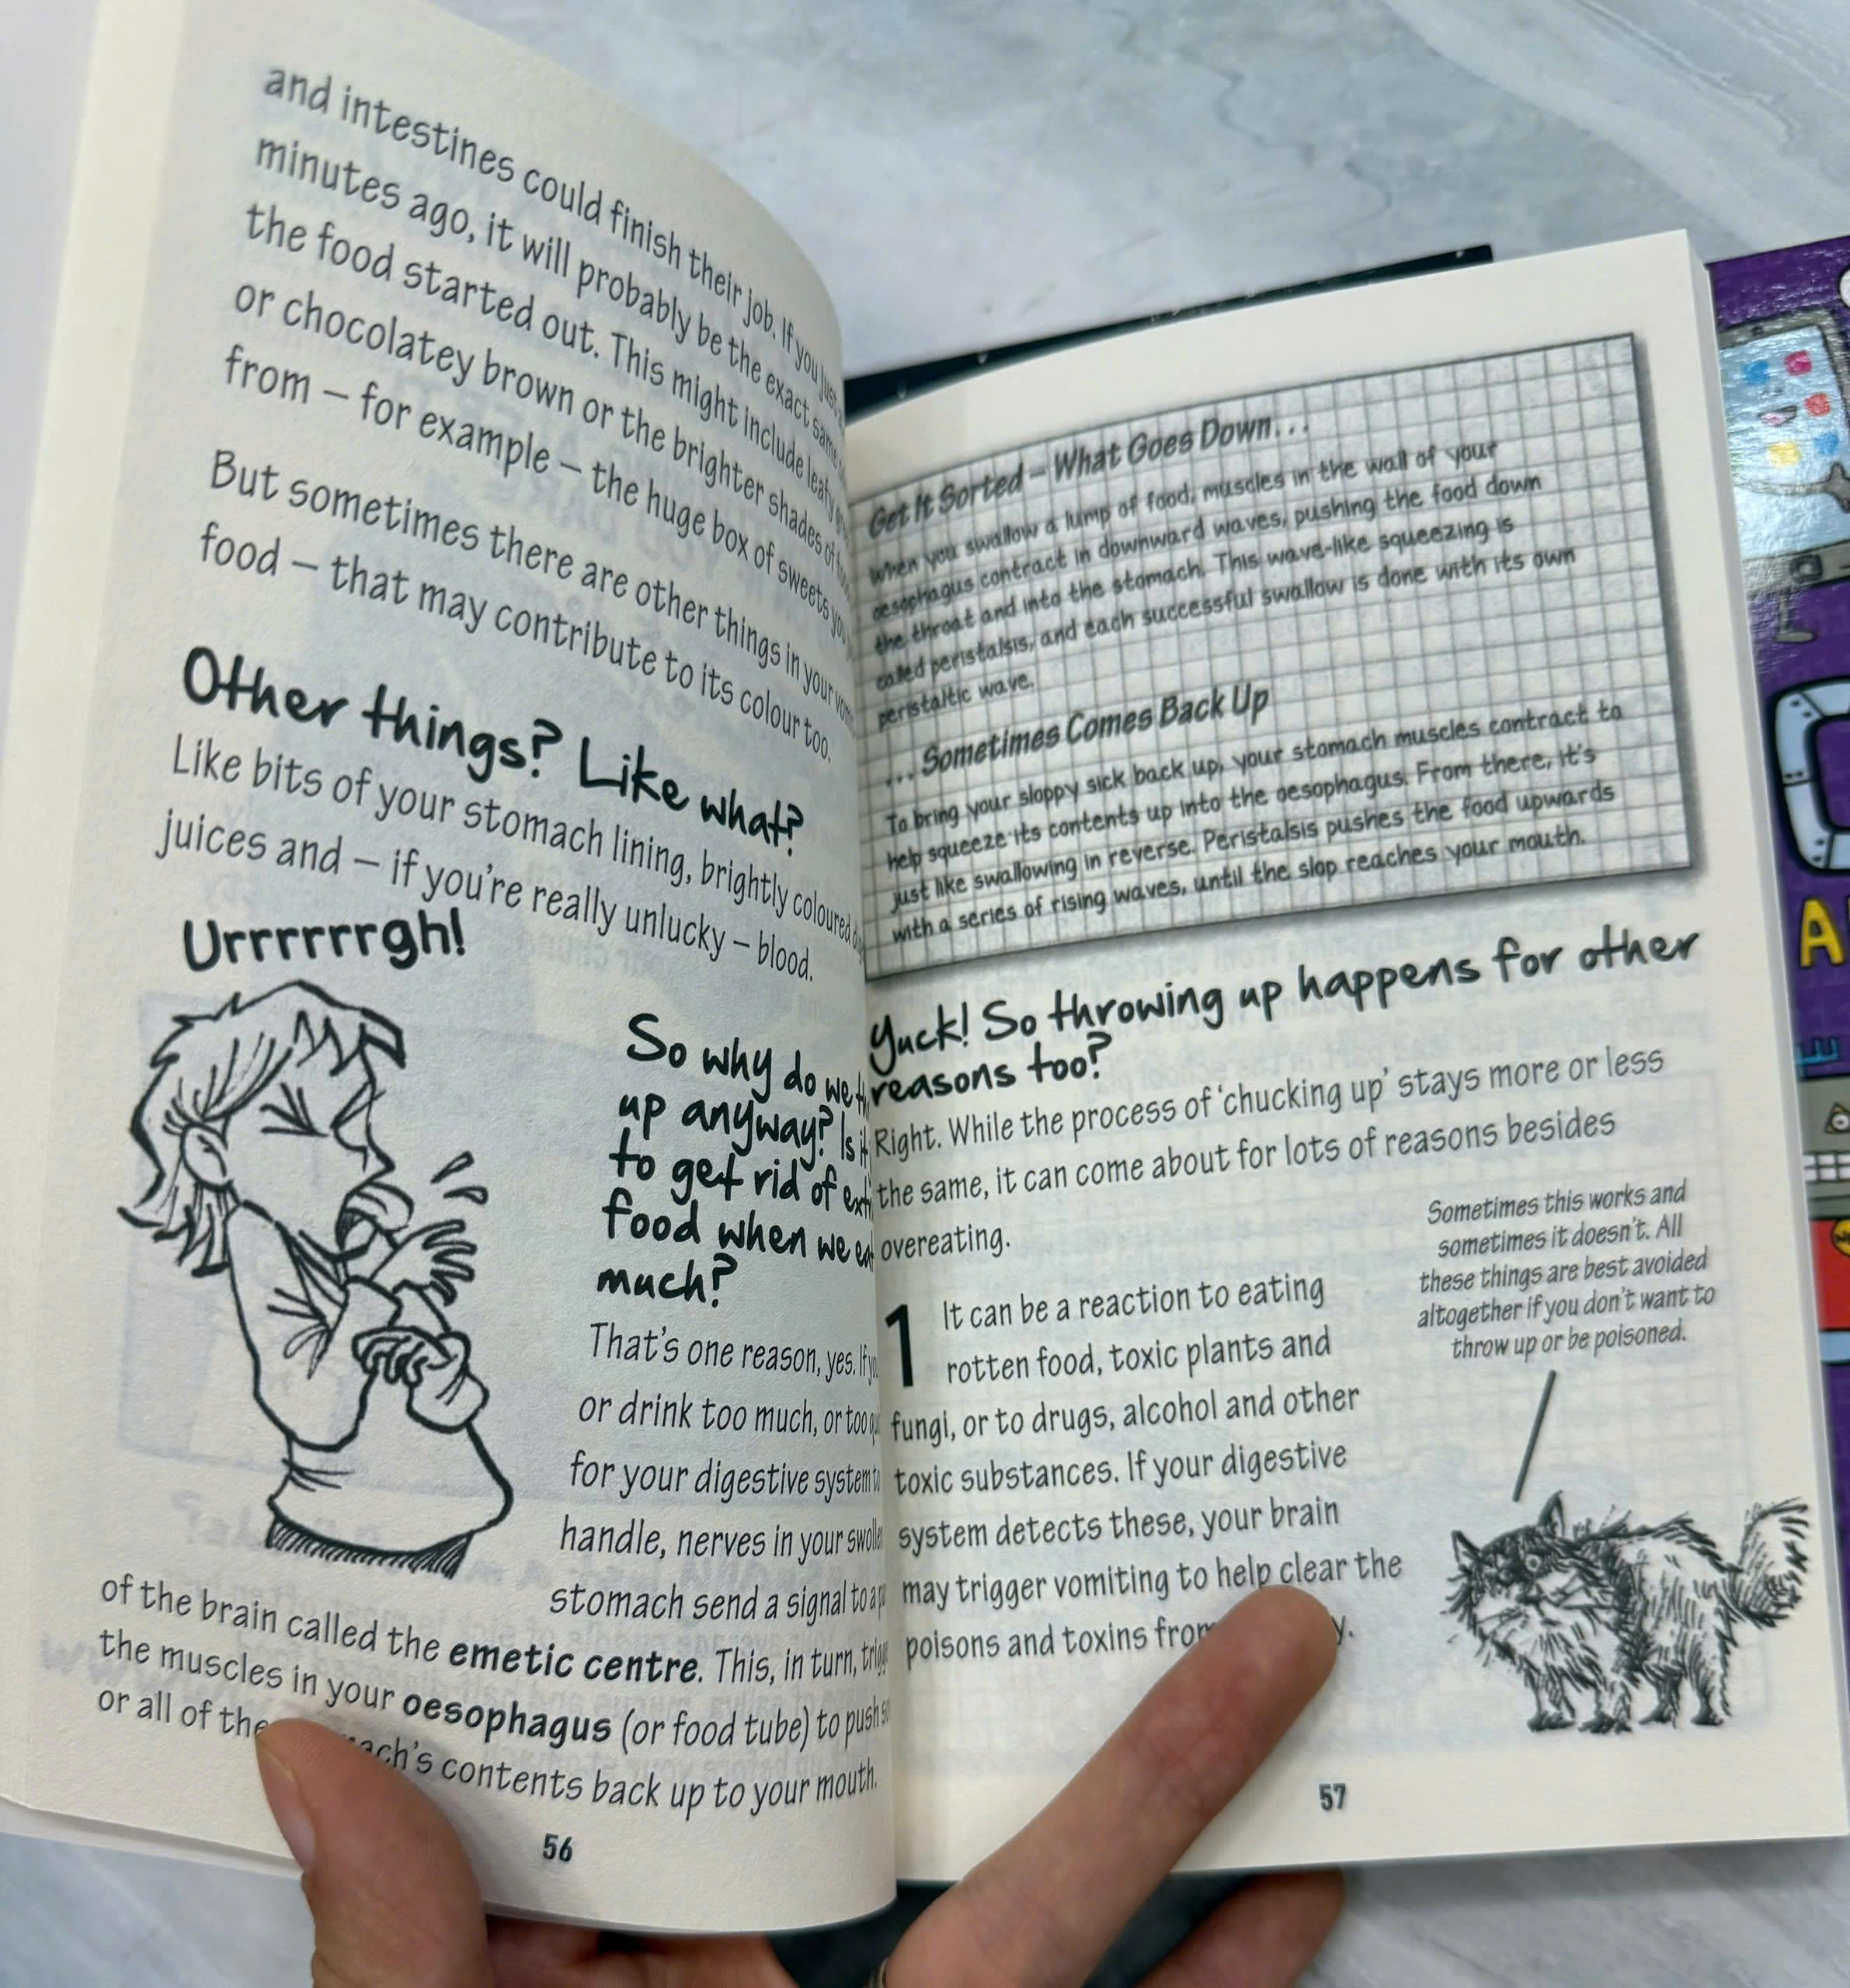 and intestines could finish their job. If you just
minutes ago, it will probably be the exact same
the food started out. This might include leafy
or chocolatey brown or the brighter shades of
from – for example – the huge box of sweets you
But sometimes there are other things in your
food – that may contribute to its colour too.
Other things? Like what?
Like bits of your stomach lining, brightly coloured
juices and – if you're really unlucky – blood.
Urrrrrrgh!
So why do we
up anyway? Is it
to get rid of
food when we
much?
That's one reason, yes. If
or drink too much, or too
for your digestive system
handle, nerves in your
stomach send a signal to a
of the brain called the emetic centre. This, in turn,
the muscles in your oesophagus (or food tube) to push
or all of the contents back up to your mouth.
56
Get It Sorted – What Goes Down...
When you swallow a lump of food, muscles in the wall of your
oesophagus contract in downward waves, pushing the food down
the throat and into the stomach. This wave-like squeezing is
called peristalsis, and each successful swallow is done with its own
peristaltic wave.
... Sometimes Comes Back Up
To bring your sloppy sick back up, your stomach muscles contract to
help squeeze its contents up into the oesophagus. From there, it's
just like swallowing in reverse. Peristalsis pushes the food upwards
with a series of rising waves, until the slop reaches your mouth.
Yuck! So throwing up happens for other
reasons too?
Right. While the process of 'chucking up' stays more or less
the same, it can come about for lots of reasons besides
overeating.
1 It can be a reaction to eating
rotten food, toxic plants and
fungi, or to drugs, alcohol and other
toxic substances. If your digestive
system detects these, your brain
may trigger vomiting to help clear the
poisons and toxins from
Sometimes this works and
sometimes it doesn't. All
these things are best avoided
altogether if you don't want to
throw up or be poisoned.
57